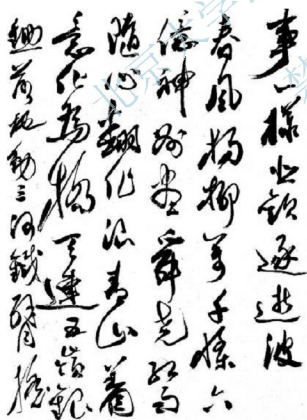 事一樣悲歡逐逝波
春風楊柳萬千條六
億神州盡舜堯紅雨
隨心翻作浪青山著
意化為橋天連五嶺銀
鋤落地動三河鐵臂搖